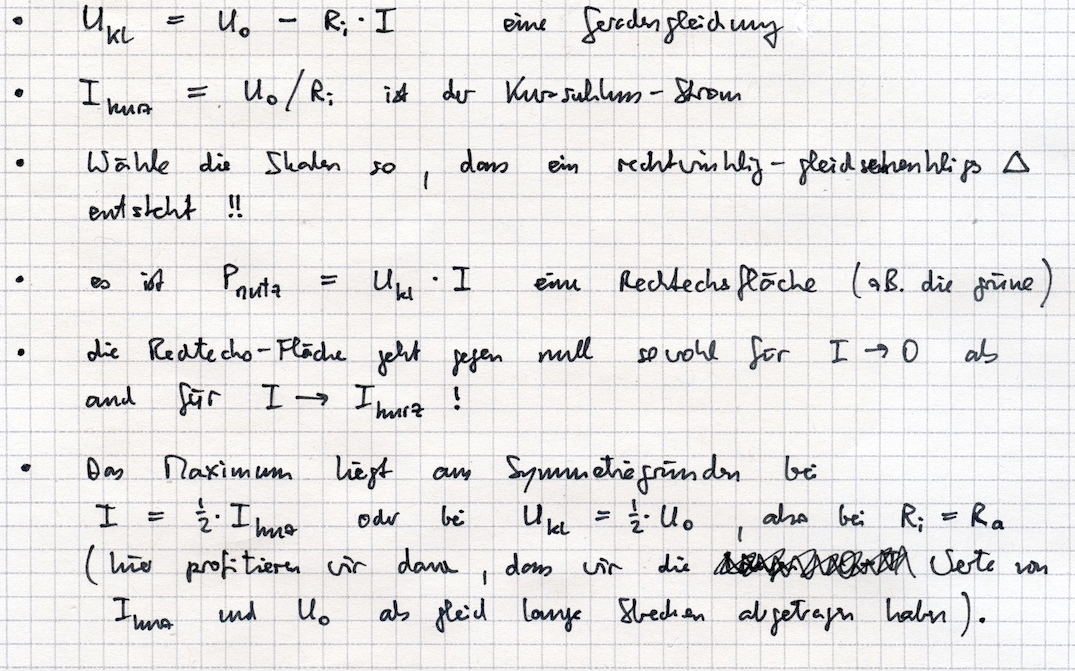 • U_kl = U_0 - R_i · I eine Geradengleichung
• I_kurz = U_0 / R_i ist der Kurzschluss-Strom
• Wähle die Skalen so, dass ein rechtwinklig-gleichschenkliges △
entsteht !!
• es ist P_nutz = U_kl · I eine Rechtecksfläche (zB. die grüne)
• die Rechtecks-Fläche geht gegen null sowohl für I → 0 als
auch für I → I_kurz !
• Das Maximum liegt aus Symmetriegründen bei
I = ½ · I_kurz oder bei U_kl = ½ · U_0, also bei R_i = R_a
(hier profitieren wir davon, dass wir die Werte von
I_kurz und U_0 als gleich lange Strecken abgetragen haben).